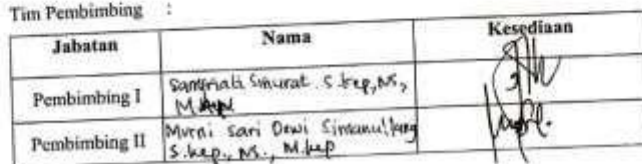 Tim Pembimbing :
Jabatan Nama Kesediaan
Pembimbing I Samfriati Sinurat. S.kep, Ns,
M.
Pembimbing II Murni Sari Dewi Simanullang
S.kep., Ns., M.kep